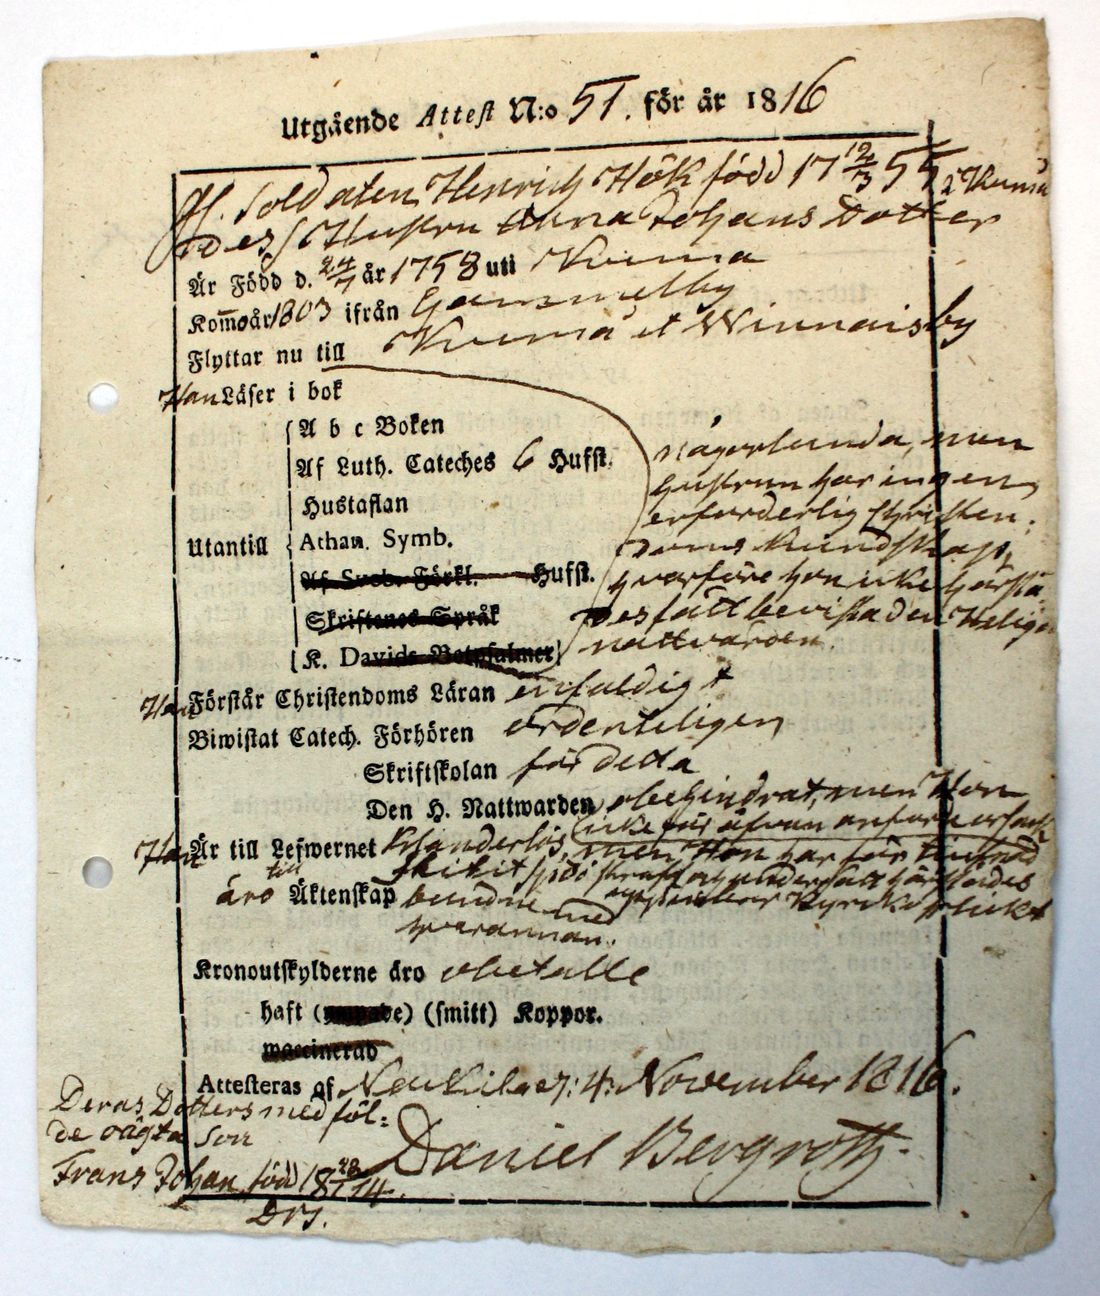 Utgående Attest N:o 51. för år 1816
f. Soldaten Henrich Hök född 17 12/3 55 i Kumo
Dess Hustru Anna Johans Dotter
Är Född d. 24/7 år 1758 uti Kumo
Kom̄o år 1803 ifrån Gammelby
Flyttar nu till Kumo et Winnaisby
Han Läser i bok
A b c Boken
Af Luth. Cateches 6 Hufst.
Hustaflan
Utantill Athan. Symb.
Af Sveb. Förkl. Hufst.
Skriftenes Språk
K. Davids Botpsalmer
någorlunda, men
hustrun har ingen
erforderlig Christen-
doms Kundskap,
hvarföre hon icke härstä
des fått bevista den Helige
nattvarden
Han Förstår Christendoms Läran enfaldigt
Biwistat Catech. Förhören ordenteligen
Skriftskolan för detta
Den H. Nattwarden obehindrat, men Hon
icke för ofvan anförd orsak
Han Är till Lefwernet oklanderlös, men Hon har för tjufnad
undergått härstädes
uppenbar Kyrko plickt
äro till Äktenskap bundne med
hvarannan.
Kronoutskylderne äro obetalte
haft (ympade) (smitt) Koppor.
waccinerad
Attesteras af Nykirka d. 4: November 1816.
Daniel Bergroth.
Deras Dotters med föl-
de oägta Son
Frans Johan född 18 28/1 14.
Drs.